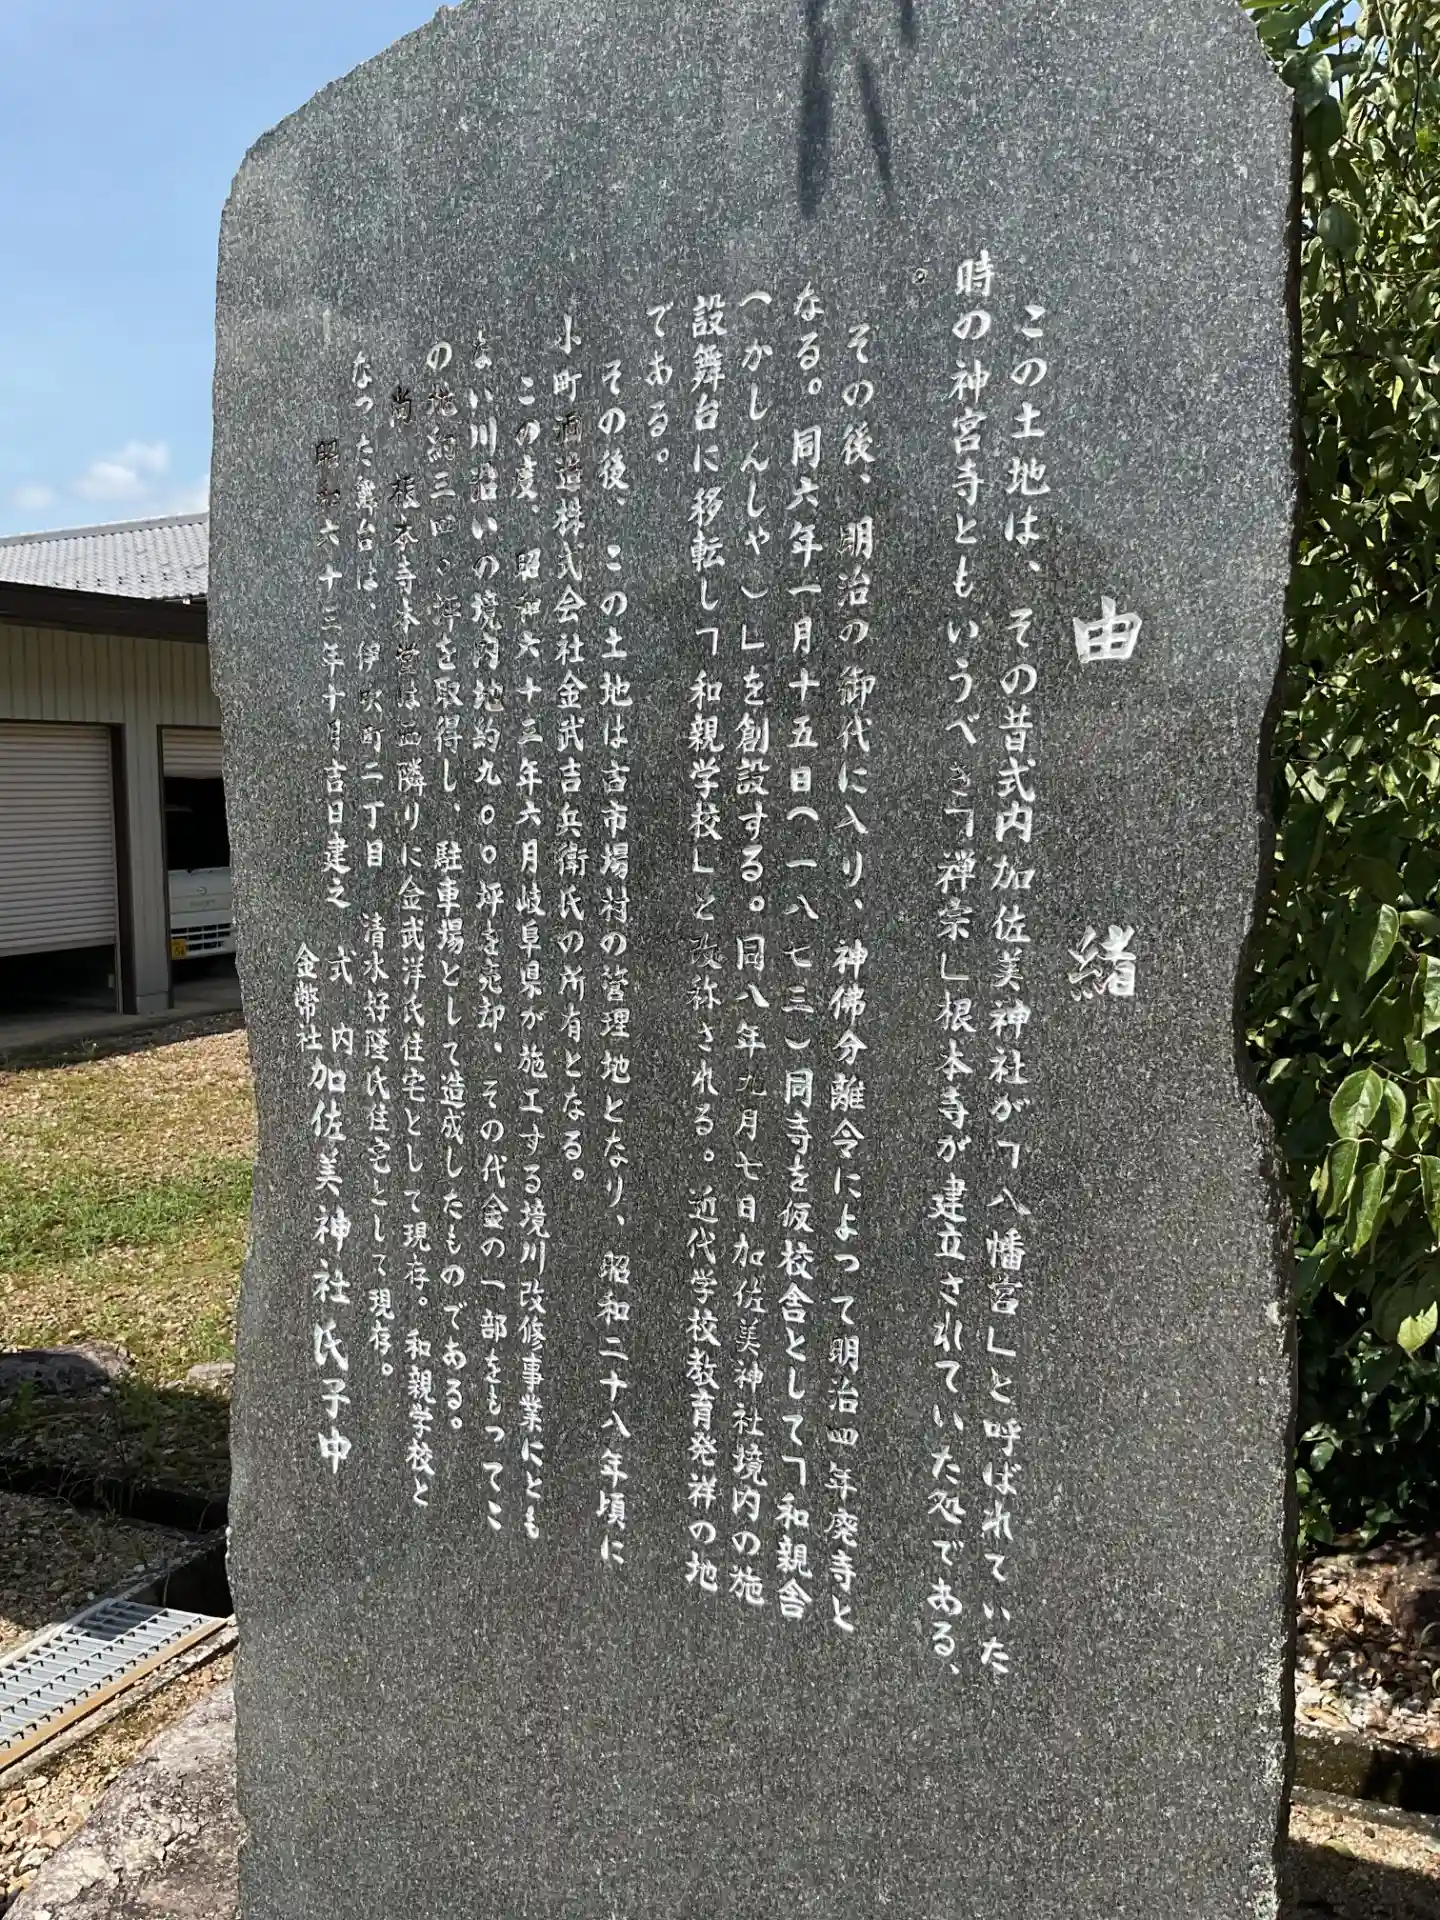 由緒
この土地は、その昔式内加佐美神社が「八幡宮」と呼ばれていた
時の神宮寺ともいうべき「禅宗」根本寺が建立されていた処である、
。
その後、明治の御代に入り、神佛分離令によって明治四年廃寺と
なる。同六年一月十五日(一八七三)同寺を仮校舎として「和親舎
(かしんしゃ)」を創設する。同八年九月七日加佐美神社境内の施
設舞台に移転し「和親学校」と改称される。近代学校教育発祥の地
である。
その後、この土地は古市場村の管理地となり、昭和二十八年頃に
小町酒造株式会社金武吉兵衛氏の所有となる。
この度、昭和六十三年六月岐阜県が施工する境川改修事業にとも
ない川沿いの境内地約九〇〇坪を売却、その代金の一部をもってこ
の地約三四〇坪を取得し、駐車場として造成したものである。
尚、根本寺本堂は西隣りに金武洋氏住宅として現存。和親学校と
なった舞台は、伊吹町二丁目 清水好隆氏住宅として現存。
昭和六十三年十月吉日建之 式内 加佐美神社氏子中
金幣社